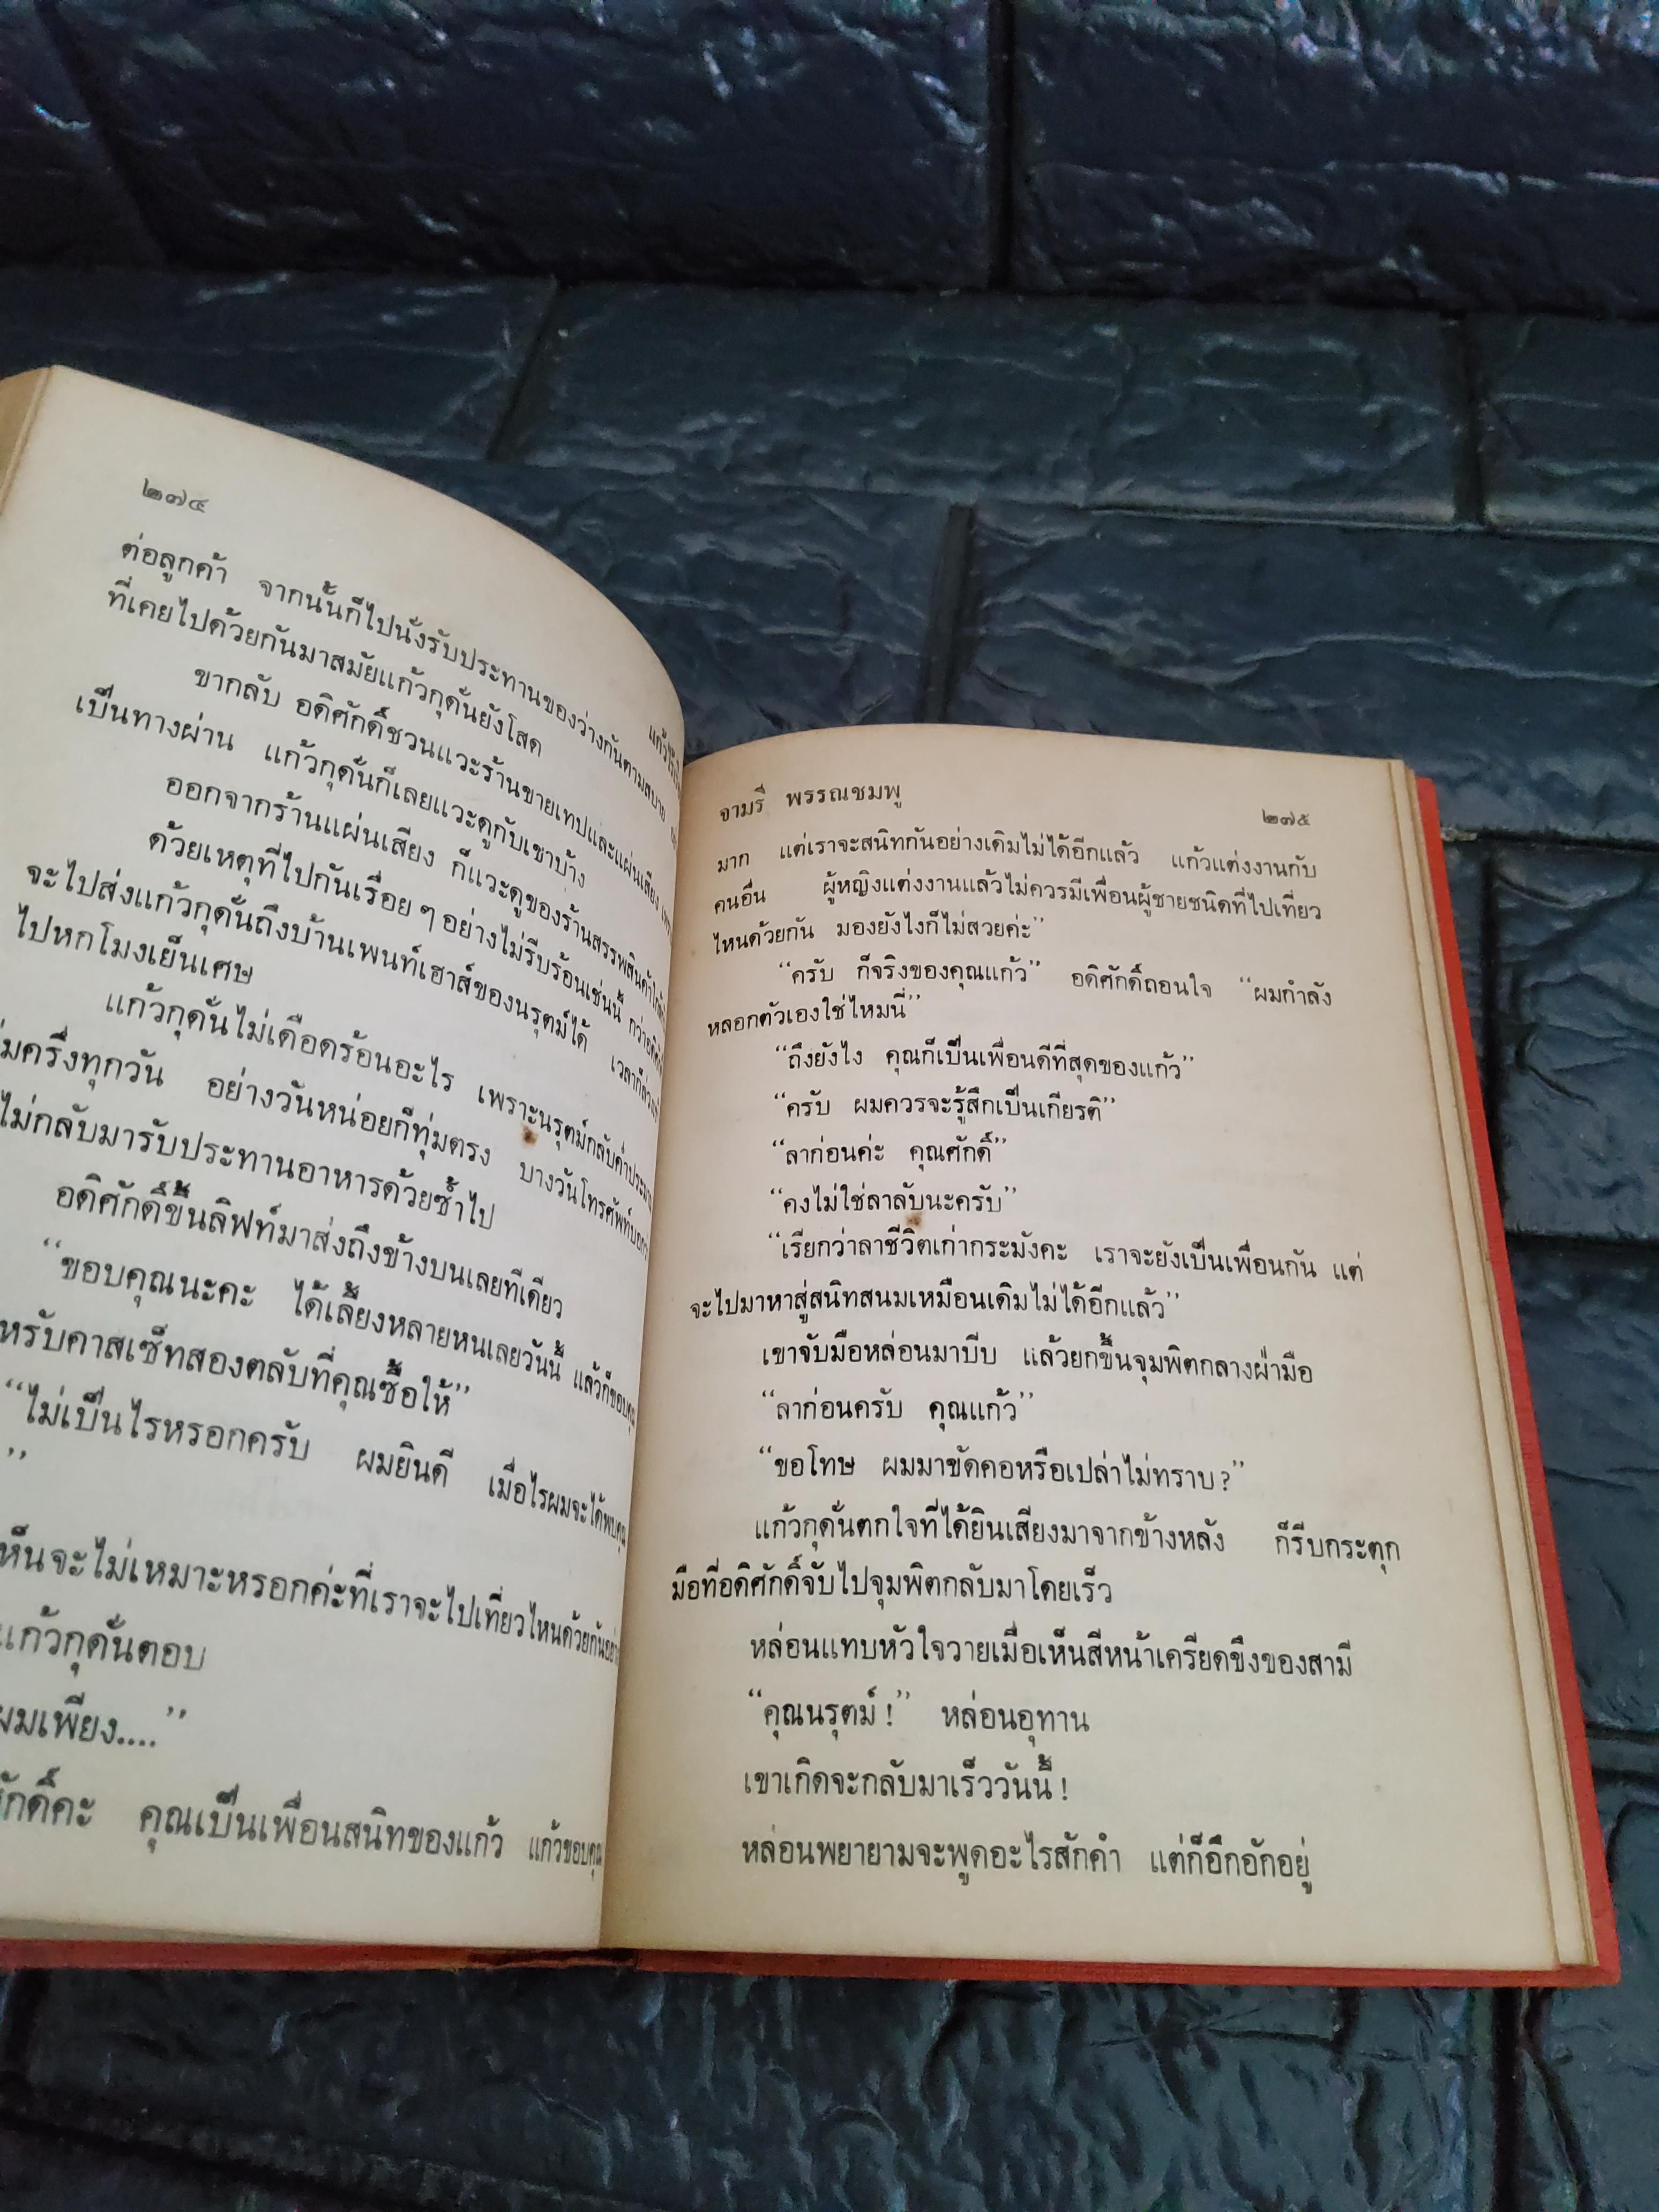 ๒๗๔
ต่อลูกค้า จากนั้นก็ไปนั่งรับประทานของว่างกันตามสบาย
ที่เคยไปด้วยกันมาสมัยแก้วกุดั่นยังโสด
ขากลับ อดิศักดิ์ชวนแวะร้านขายเทปและแผ่นเสียง
เป็นทางผ่าน แก้วกุดั่นก็เลยแวะดูกับเขาบ้าง
ออกจากร้านแผ่นเสียง ก็แวะดูของร้านสรรพสินค้า
ด้วยเหตุที่ไปกันเรื่อย ๆ อย่างไม่รีบร้อนเช่นนี้ กว่า
จะไปส่งแก้วกุดั่นถึงบ้านเพนท์เฮาส์ของนรุตม์ได้ เวลาก็
ไปหกโมงเย็นเศษ
แก้วกุดั่นไม่เดือดร้อนอะไร เพราะนรุตม์กลับค่ำประมาณ
มครึ่งทุกวัน อย่างวันหน่อยก็ทุ่มตรง บางวันโทรศัพท์
ไม่กลับมารับประทานอาหารด้วยซ้ำไป
อดิศักดิ์ขึ้นลิฟท์มาส่งถึงข้างบนเลยทีเดียว
“ขอบคุณนะคะ ได้เลี้ยงหลายหนเลยวันนี้ แล้วก็ขอบคุณ
หรับคาสเซ็ทสองตลับที่คุณซื้อให้”
“ไม่เป็นไรหรอกครับ ผมยินดี เมื่อไรผมจะได้พบคุณ
”
เห็นจะไม่เหมาะหรอกค่ะที่เราจะไปเที่ยวไหนด้วยกันอย่าง
แก้วกุดั่นตอบ
ผมเพียง....”
ศักดิ์คะ คุณเป็นเพื่อนสนิทของแก้ว แก้วขอบคุณ
จามรี พรรณชมพู ๒๗๕
มาก แต่เราจะสนิทกันอย่างเดิมไม่ได้อีกแล้ว แก้วแต่งงานกับ
คนอื่น ผู้หญิงแต่งงานแล้วไม่ควรมีเพื่อนผู้ชายชนิดที่ไปเที่ยว
ไหนด้วยกัน มองยังไงก็ไม่สวยค่ะ”
“ครับ ก็จริงของคุณแก้ว” อดิศักดิ์ถอนใจ “ผมกำลัง
หลอกตัวเองใช่ไหมนี่”
“ถึงยังไง คุณก็เป็นเพื่อนดีที่สุดของแก้ว”
“ครับ ผมควรจะรู้สึกเป็นเกียรติ”
“ลาก่อนค่ะ คุณศักดิ์”
“คงไม่ใช่ลาลับนะครับ”
“เรียกว่าลาชีวิตเก่ากระมังคะ เราจะยังเป็นเพื่อนกัน แต่
จะไปมาหาสู่สนิทสนมเหมือนเดิมไม่ได้อีกแล้ว”
เขาจับมือหล่อนมาบีบ แล้วยกขึ้นจุมพิตกลางฝ่ามือ
“ลาก่อนครับ คุณแก้ว”
“ขอโทษ ผมมาขัดคอหรือเปล่าไม่ทราบ?”
แก้วกุดั่นตกใจที่ได้ยินเสียงมาจากข้างหลัง ก็รีบกระตุก
มือที่อดิศักดิ์จับไปจุมพิตกลับมาโดยเร็ว
หล่อนแทบหัวใจวายเมื่อเห็นสีหน้าเครียดขึงของสามี
“คุณนรุตม์!” หล่อนอุทาน
เขาเกิดจะกลับมาเร็ววันนี้!
หล่อนพยายามจะพูดอะไรสักคำ แต่ก็อึกอักอยู่